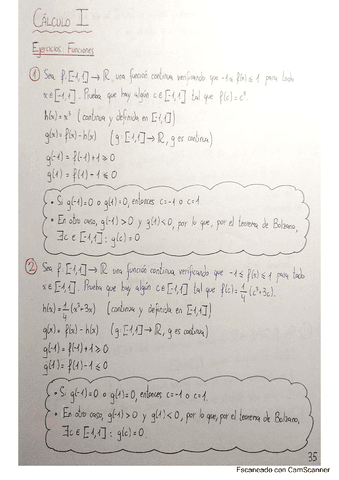 CÁLCULO I
Ejercicios: Funciones
① Sea f: [-1,1] → ℝ una función continua verificando que -1 ≤ f(x) ≤ 1 para todo
x ∈ [-1,1]. Prueba que hay algún c ∈ [-1,1] tal que f(c) = c³.
h(x) = x³ (continua y definida en [-1,1])
g(x) = f(x) - h(x) (g: [-1,1] → ℝ, g es continua)
g(-1) = f(-1) + 1 ⩾ 0
g(1) = f(1) - 1 ⩽ 0
• Si g(-1) = 0 o g(1) = 0, entonces c = -1 o c = 1.
• En otro caso, g(-1) > 0 y g(1) < 0, por lo que, por el teorema de Bolzano,
∃c ∈ [-1,1] : g(c) = 0
② Sea f: [-1,1] → ℝ una función continua verificando que -1 ≤ f(x) ≤ 1 para todo
x ∈ [-1,1]. Prueba que hay algún c ∈ [-1,1] tal que f(c) = 1/4 (c² + 3c).
h(x) = 1/4 (x² + 3x) (continua y definida en [-1,1])
g(x) = f(x) - h(x) (g: [-1,1] → ℝ, g es continua)
g(-1) = f(-1) + 1 ⩾ 0
g(1) = f(1) - 1 ⩽ 0
• Si g(-1) = 0 o g(1) = 0, entonces c = -1 o c = 1.
• En otro caso, g(-1) > 0 y g(1) < 0, por lo que, por el teorema de Bolzano,
∃c ∈ [-1,1] : g(c) = 0.
35
Escaneado con CamScanner